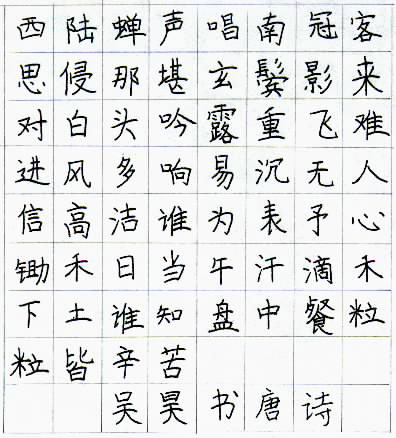 西陆蝉声唱南冠客
思侵那堪玄鬓影来
对白头吟露重飞难
进风多响易沉无人
信高洁谁为表予心
锄禾日当午汗滴禾
下土谁知盘中餐粒
粒皆辛苦
吴昊书唐诗